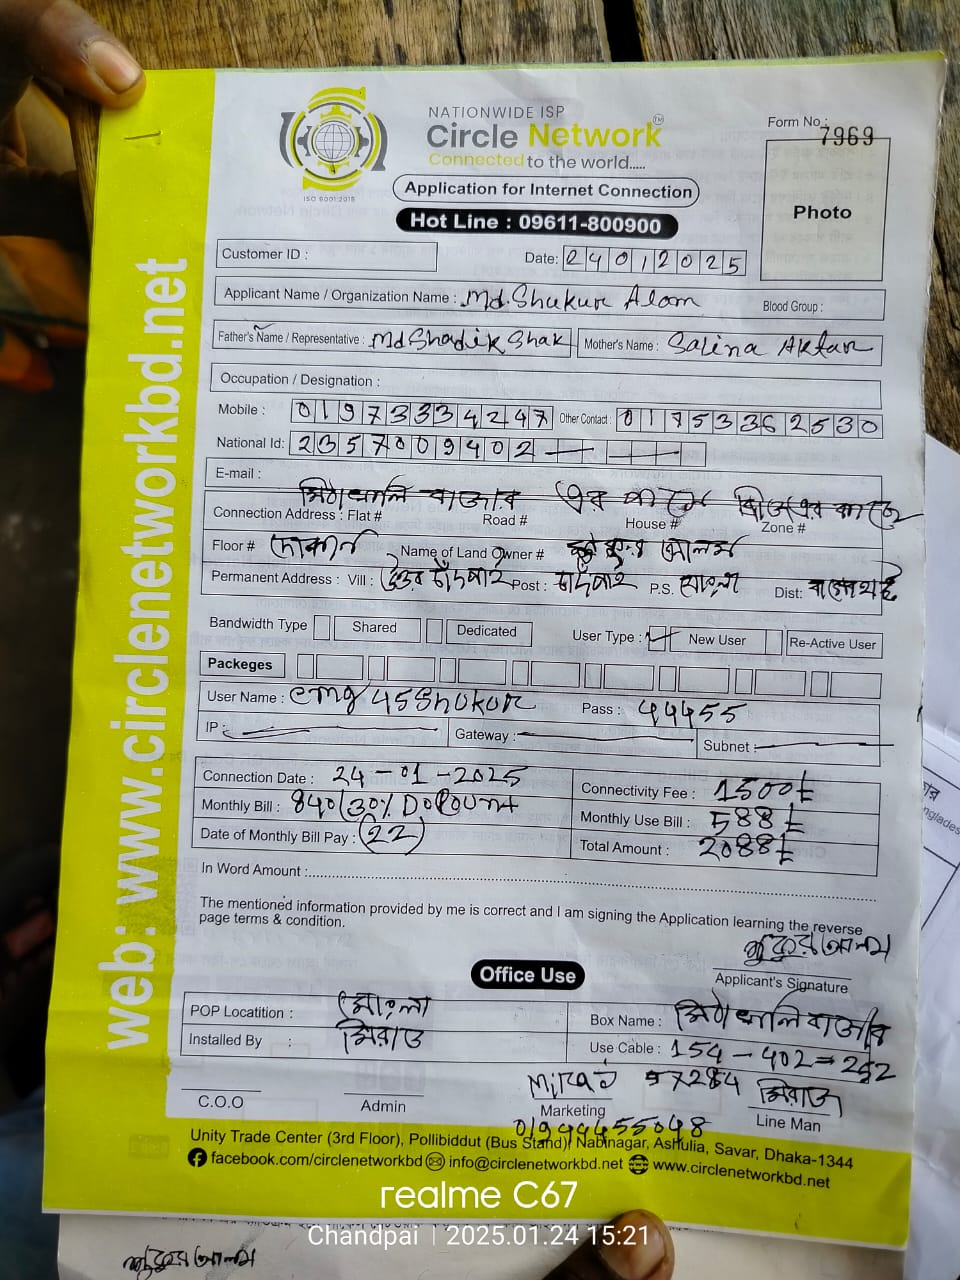 NATIONWIDE ISP
Circle Network TM
Connected to the world.....
ISO 9001:2015
Form No : 7969
Photo
Application for Internet Connection
Hot Line : 09611-800900
Customer ID :
Date: 24012025
Applicant Name / Organization Name : Md. Shukur Alom Blood Group :
Father's Name / Representative : Md Shadik Shak Mother's Name : Salina Aktar
Occupation / Designation :
Mobile : 01973334247 Other Contact : 01753362530
National Id: 2357009402
E-mail :
মিঠাখালি বাজার এর পাশে ব্রিজের কাছে
Connection Address : Flat # Road # House # Zone #
Floor # দোকান Name of Land Owner # শুকুর আলম
Permanent Address : Vill : চাঁদপাই Post : চাঁদপাই P.S. মোংলা Dist: বাগেরহাট
Bandwidth Type Shared Dedicated User Type : New User Re-Active User
Packeges
User Name : cmg45Shukur Pass : 44455
IP : Gateway : Subnet :
Connection Date : 24-01-2025 Connectivity Fee : 1500৳
Monthly Bill : 840(30% Monthly Use Bill : 588৳
Date of Monthly Bill Pay : (22) Total Amount : 2088৳
In Word Amount :
The mentioned information provided by me is correct and I am signing the Application learning the reverse
page terms & condition.
শুকুর আলম
Applicant's Signature
Office Use
POP Locatition : মোংলা Box Name : মিঠাখালি বাজার
Installed By : মিরাজ Use Cable : 154 - 402 = 252
Miraj 57284 মিরাজ
C.O.O Admin Marketing Line Man
01944455048
Unity Trade Center (3rd Floor), Pollibiddut (Bus Stand) Nabinagar, Ashulia, Savar, Dhaka-1344
facebook.com/circlenetworkbd info@circlenetworkbd.net www.circlenetworkbd.net
web: www.circlenetworkbd.net
realme C67
Chandpai | 2025.01.24 15:21
শুকুর আলম